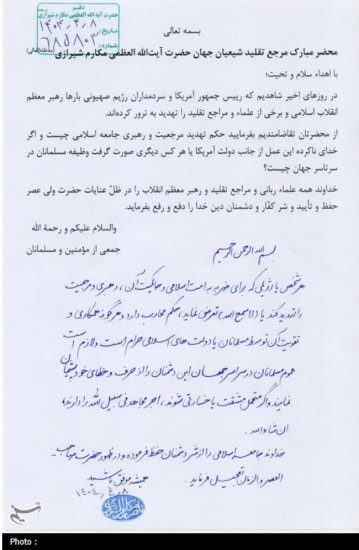 بسمه تعالی
دفتر
حضرت آیة‌الله العظمی مکارم شیرازی
۱۴۰۴/۴/۸
تاریخ:
۶۸۵۸۰۳
شماره:
محضر مبارک مرجع تقلید شیعیان جهان حضرت آیت‌الله العظمی مکارم شیرازی
با اهداء سلام و تحیت؛
در روزهای اخیر شاهدیم که رییس جمهور آمریکا و سردمداران رژیم صهیونی بارها رهبر معظم
انقلاب اسلامی و برخی از علماء و مراجع تقلید را تهدید به ترور کرده‌اند.
از محضرتان تقاضامندیم بفرمایید حکم تهدید مرجعیت و رهبری جامعه اسلامی چیست و اگر
خدای ناکرده این عمل از جانب دولت آمریکا یا هر کس دیگری صورت گرفت وظیفه مسلمانان در
سرتاسر جهان چیست؟
خداوند همه علماء ربانی و مراجع تقلید و رهبر معظم انقلاب را در ظلّ عنایات حضرت ولی عصر
حفظ و تأیید و شر کفّار و دشمنان دین خدا را دفع و رفع بفرماید.
والسلام علیکم و رحمة الله
جمعی از مؤمنین و مسلمانان
بسم الله الرحمن الرحیم
هر شخص یا رژیمی که برای ضربه به امت اسلامی و حاکمیت آن، رهبری و مرجعیت
را تهدید کند یا (لا سمح الله) تعرضی نماید، حکم محارب دارد و هرگونه همکاری و
تقویت آن توسط مسلمانان یا دولت‌های اسلامی حرام است و لازم است
عموم مسلمانان در سراسر جهان این دشمنان را از حرف و خطای خود پشیمان
نمایند و اگر متحمل مشقت یا خسارتی شوند، اجر مجاهد فی سبیل الله را دارند،
ان شاء الله.
خداوند جامعه اسلامی را از شر دشمنان حفظ فرموده و در ظهور حضرت صاحب
العصر و الزمان تعجیل فرماید.
همیشه موفق باشید
۱۴۰۴/۴/۸
Photo :